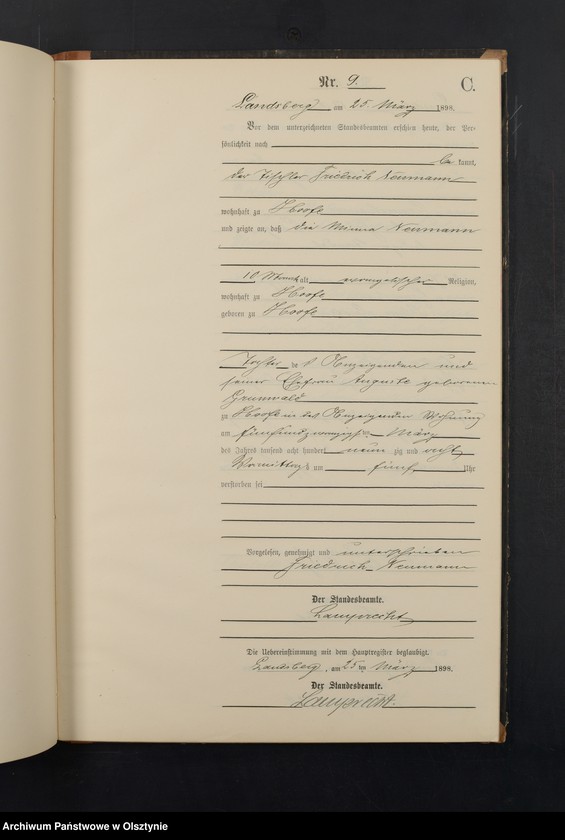 Nr. 9.
C.
Landsberg am 25. März 1898.
Vor dem unterzeichneten Standesbeamten erschien heute, der Per-
sönlichkeit nach
be kannt,
der Tischler Friedrich Neumann
wohnhaft zu Hoofe
und zeigte an, daß die Minna Neumann
10 Monat alt evangelischer Religion,
wohnhaft zu Hoofe
geboren zu Hoofe
Tochter des Anzeigenden und
seiner Ehefrau Auguste geborenen
Grunwald
zu Hoofe in des Anzeigenden Wohnung
am fünfundzwanzigsten März
des Jahres tausend acht hundert neun zig und acht
Vormittags um fünf Uhr
verstorben sei
Vorgelesen, genehmigt und unterschrieben
Friedrich Neumann
Der Standesbeamte.
Lamprecht
Die Uebereinstimmung mit dem Hauptregister beglaubigt.
Landsberg, am 25 ten März 1898.
Der Standesbeamte.
Lamprecht.
Archiwum Państwowe w Olsztynie